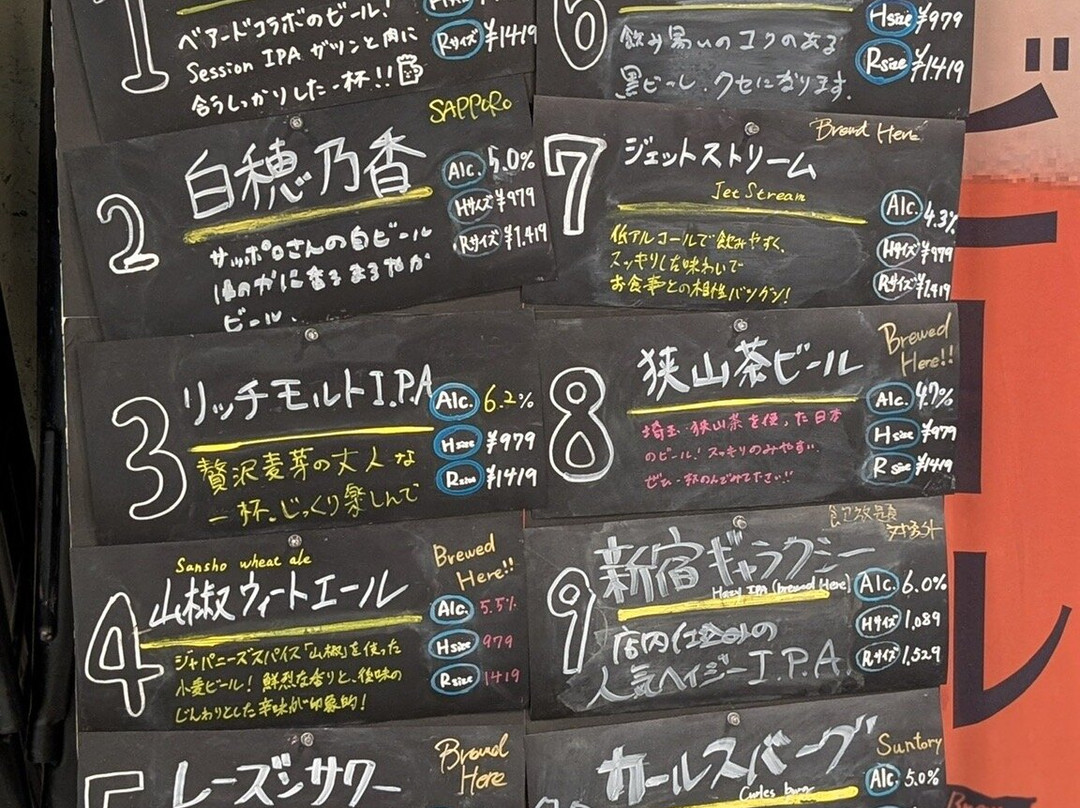 1
ベアードコラボのビール!
Session IPA ガツンと肉に
合うしっかりした一杯!!
Rサイズ ¥1419
SAPPORO
2
白穂乃香
Alc. 5.0%
Hサイズ ¥979
Rサイズ ¥1.419
サッポロさんの白ビール
ほのかに香るまろやか
ビール、
3
リッチモルトI.P.A
Alc. 6.2%
H size ¥979
R size ¥1419
贅沢麦芽の大人な
一杯。じっくり楽しんで
4
Sansho wheat ale
山椒ウィートエール
Brewed
Here!!
Alc. 5.5%
H size 979
R size 1419
ジャパニーズスパイス「山椒」を使った
小麦ビール! 鮮烈な香りと、後味の
じんわりとした辛味が印象的!
5
レーズンサワー
Brewed
Here
6
H size ¥979
R size ¥1419
飲み易いのコクのある
黒ビール.クセになります.
7
ジェットストリーム
Jet Stream
Brewd Here
Alc. 4.3%
Hサイズ ¥979
Rサイズ ¥1,419
低アルコールで飲みやすく、
スッキリした味わいで
お食事との相性バツグン!
8
狭山茶ビール
Brewed
Here!!
Alc. 4.7%
H size ¥979
R size ¥1419
埼玉 狭山茶を使った日本
のビール!スッキリのみやすい
ぜひ一杯のんでみて下さい!!
9
新宿ギャラクシー
Hazy IPA (brewed Here)
Alc. 6.0%
Hサイズ 1,089
Rサイズ 1,529
店内仕込みの
人気ヘイジーI.P.A.
カールスバーグ
Suntory
Alc 5.0%
ビール